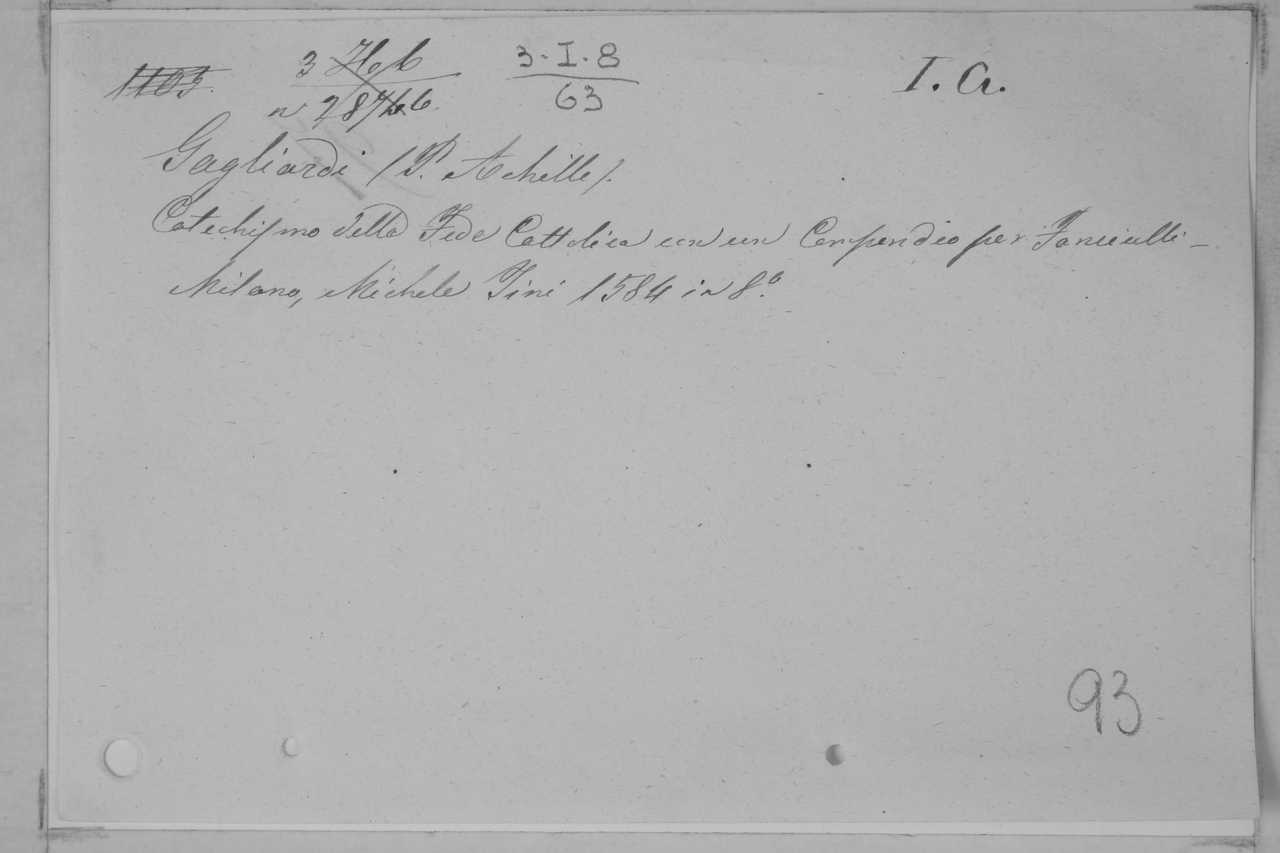 1103. 3 3-I-8 I. a.
63
Gagliardi (P. Achille).
Catechismo della Fede Cattolica con un Compendio per Fanciulli -
Milano, Michele Tini 1584 in 8.º
93